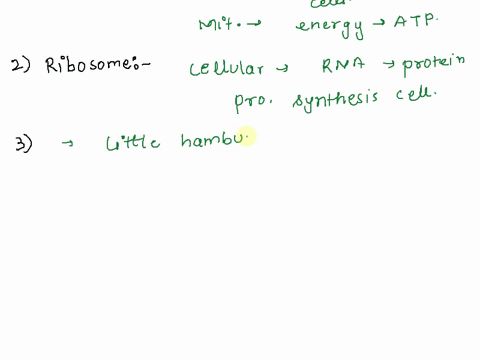 cell
Mit. → energy → ATP.
2) Ribosome:- cellular → RNA → protein
pro. synthesis cell.
3) → Little hambu.